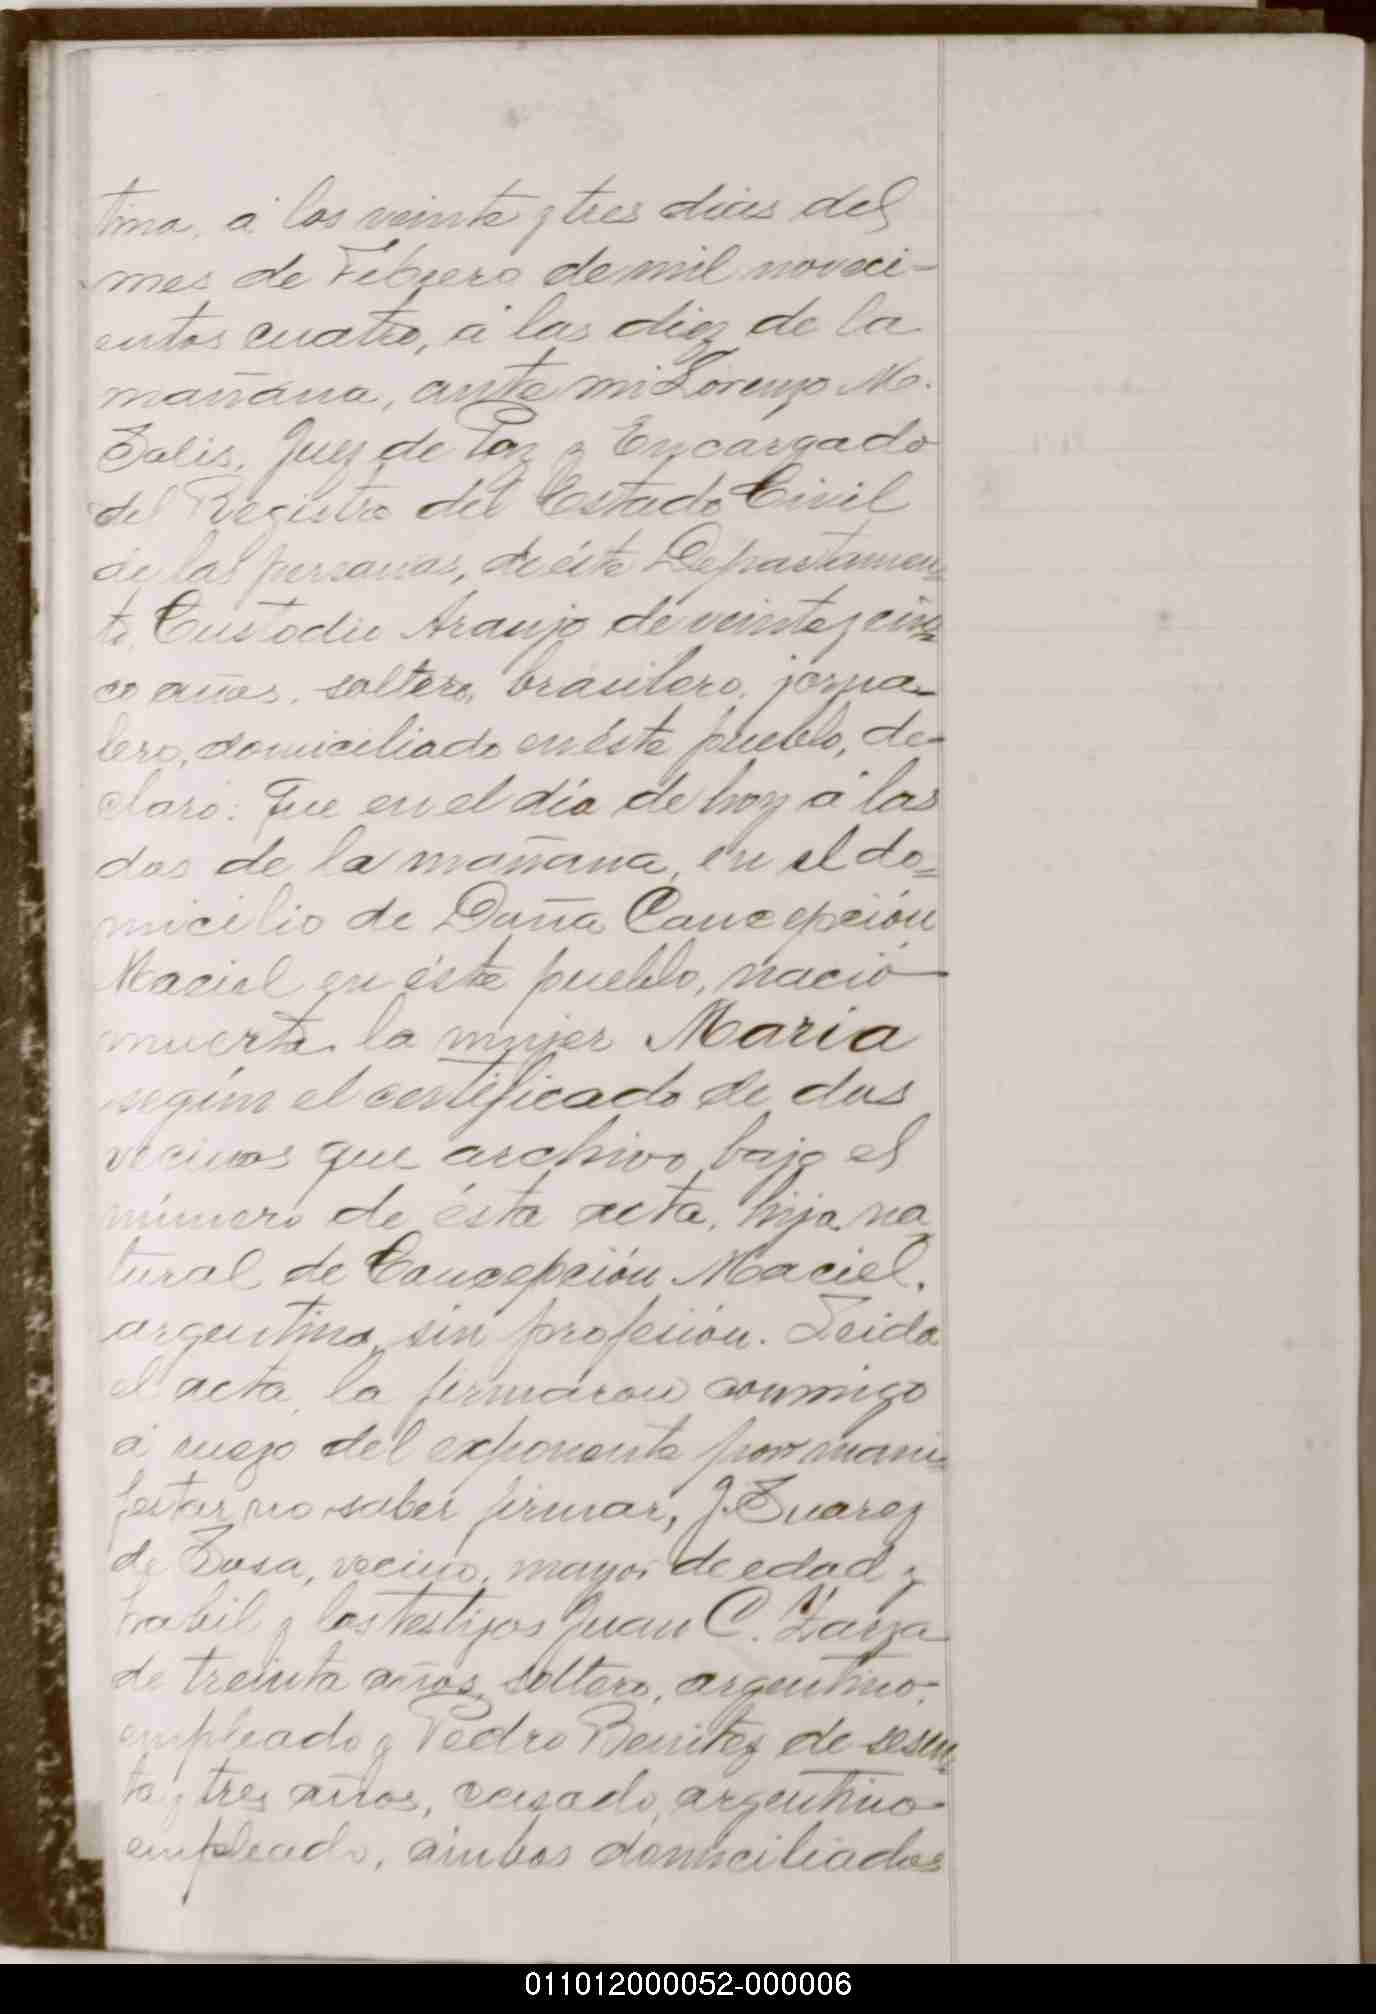 tina, á los veinte y tres dias del
mes de Febrero de mil noveci-
entos cuatro, á las diez de la
mañana, ante mi Lorenzo M.
Solis, Juez de Paz y Encargado
del Registro del Estado Civil
de las personas, de éste Departamen=
to, Custodio Araujo de veinte y cin=
co años, soltero, brasilero, jorna-
lero, domiciliado en éste pueblo, de-
claró: Que en el día de hoy á las
dos de la mañana, en el do=
micilio de Doña Concepción
Maciel en éste pueblo, nació
muerta la mujer Maria
según el certificado de dos
vecinos que archivo bajo el
número de ésta acta, hija na
tural de Concepción Maciel,
argentina, sin profesión. Leida
el acta, la firmaron conmigo
á ruego del exponente por mani=
festar no saber firmar, J. Suarez
de Sosa, vecino, mayor de edad y
habil y los testigos Juan C. Zarza
de treinta años, soltero, argentino,
empleado y Pedro Benitez de sesen=
ta y tres años, casado, argentino
empleado, ambos domiciliados
011012000052-000006